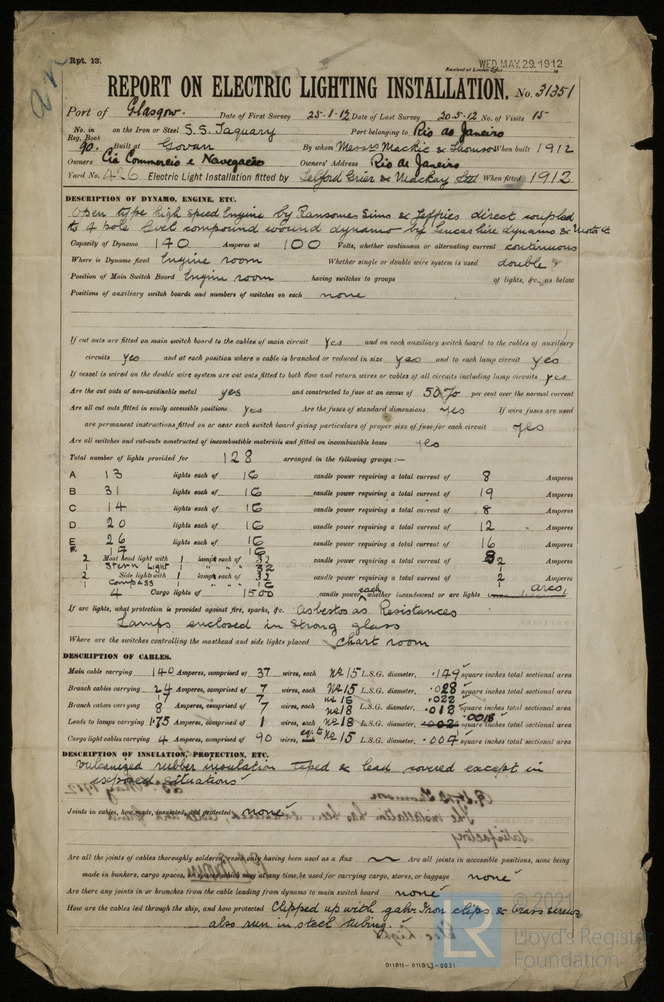 Rpt. 13.
WED. MAY. 29. 1912
Received at London Office
REPORT ON ELECTRIC LIGHTING INSTALLATION. No. 31351
Port of Glasgow. Date of First Survey 25-1-12 Date of Last Survey 20-5-12 No. of Visits 15
No. in Reg. Book on the Iron or Steel S.S. Taquary Port belonging to Rio de Janeiro
90. Built at Govan By whom Messrs Mackie & Thomson When built 1912
Owners Cia Commercio e Navegacão Owners' Address Rio de Janeiro
Yard No. 426 Electric Light Installation fitted by Telford Grier & Mackay Ltd When fitted 1912
DESCRIPTION OF DYNAMO, ENGINE, ETC.
Open type high speed Engine by Ransomes Sims & Jeffries direct coupled
to 4 pole compound wound dynamo by
Capacity of Dynamo 140 Amperes at 100 Volts, whether continuous or alternating current continuous
Where is Dynamo fixed Engine room Whether single or double wire system is used double
Position of Main Switch Board Engine room having switches to groups of lights, &c., as below
Positions of auxiliary switch boards and numbers of switches on each none
If cut outs are fitted on main switch board to the cables of main circuit yes and on each auxiliary switch board to the cables of auxiliary
circuits yes and at each position where a cable is branched or reduced in size yes and to each lamp circuit yes
If vessel is wired on the double wire system are cut outs fitted to both flow and return wires or cables of all circuits including lamp circuits yes
Are the cut outs of non-oxidizable metal yes and constructed to fuse at an excess of 50% per cent over the normal current
Are all cut outs fitted in easily accessible positions yes Are the fuses of standard dimensions yes If wire fuses are used
are permanent instructions fitted on or near each switch board giving particulars of proper size of fuse for each circuit yes
Are all switches and cut-outs constructed of incombustible materials and fitted on incombustible bases yes
Total number of lights provided for 128 arranged in the following groups :—
A 13 lights each of 16 candle power requiring a total current of 8 Amperes
B 31 lights each of 16 candle power requiring a total current of 19 Amperes
C 14 lights each of 16 candle power requiring a total current of 8 Amperes
D 20 lights each of 16 candle power requiring a total current of 12 Amperes
E 26 lights each of 16 candle power requiring a total current of 16 Amperes
F. 16
2 Mast head light with 1 lamps each of 32 candle power requiring a total current of 2 Amperes
1 Stern Light 1 " " " 32 1
2 Side lights with 1 lamps each of 32 candle power requiring a total current of 2 Amperes
1 Compass 1 " " " 16
4 Cargo lights of 1500 candle power each whether incandescent or arc lights arcs
If arc lights, what protection is provided against fire, sparks, &c. Asbestos as Resistances
Lamps enclosed in strong glass
Where are the switches controlling the masthead and side lights placed Chart room
DESCRIPTION OF CABLES.
Main cable carrying 140 Amperes, comprised of 37 wires, each No 15 L.S.G. diameter, .149 square inches total sectional area
Branch cables carrying 24 Amperes, comprised of 7 wires, each No 15 L.S.G. diameter, .028 square inches total sectional area
17 7 No 16 .022
Branch cables carrying 8 Amperes, comprised of 7 wires, each No 18 L.S.G. diameter, .012 square inches total sectional area
Leads to lamps carrying 1.75 Amperes, comprised of 1 wires, each No 18 L.S.G. diameter, .0018 square inches total sectional area
Cargo light cables carrying 4 Amperes, comprised of 90 wires, each L.S.G. diameter, .004 square inches total sectional area
DESCRIPTION OF INSULATION, PROTECTION, ETC.
Vulcanized rubber insulation taped & lead covered except in
exposed situations
Joints in cables, how made, insulated, and protected none
Are all the joints of cables thoroughly soldered, resin only having been used as a flux Are all joints in accessible positions, none being
made in bunkers, cargo spaces, or spaces which may at any time, be used for carrying cargo, stores, or baggage none
Are there any joints in or branches from the cable leading from dynamo to main switch board none
How are the cables led through the ship, and how protected Clipped up with galv. Iron clips & brass screws
also run in steel tubing.
011011-011023-0031
LR
© 2021
Lloyd's Register
Foundation